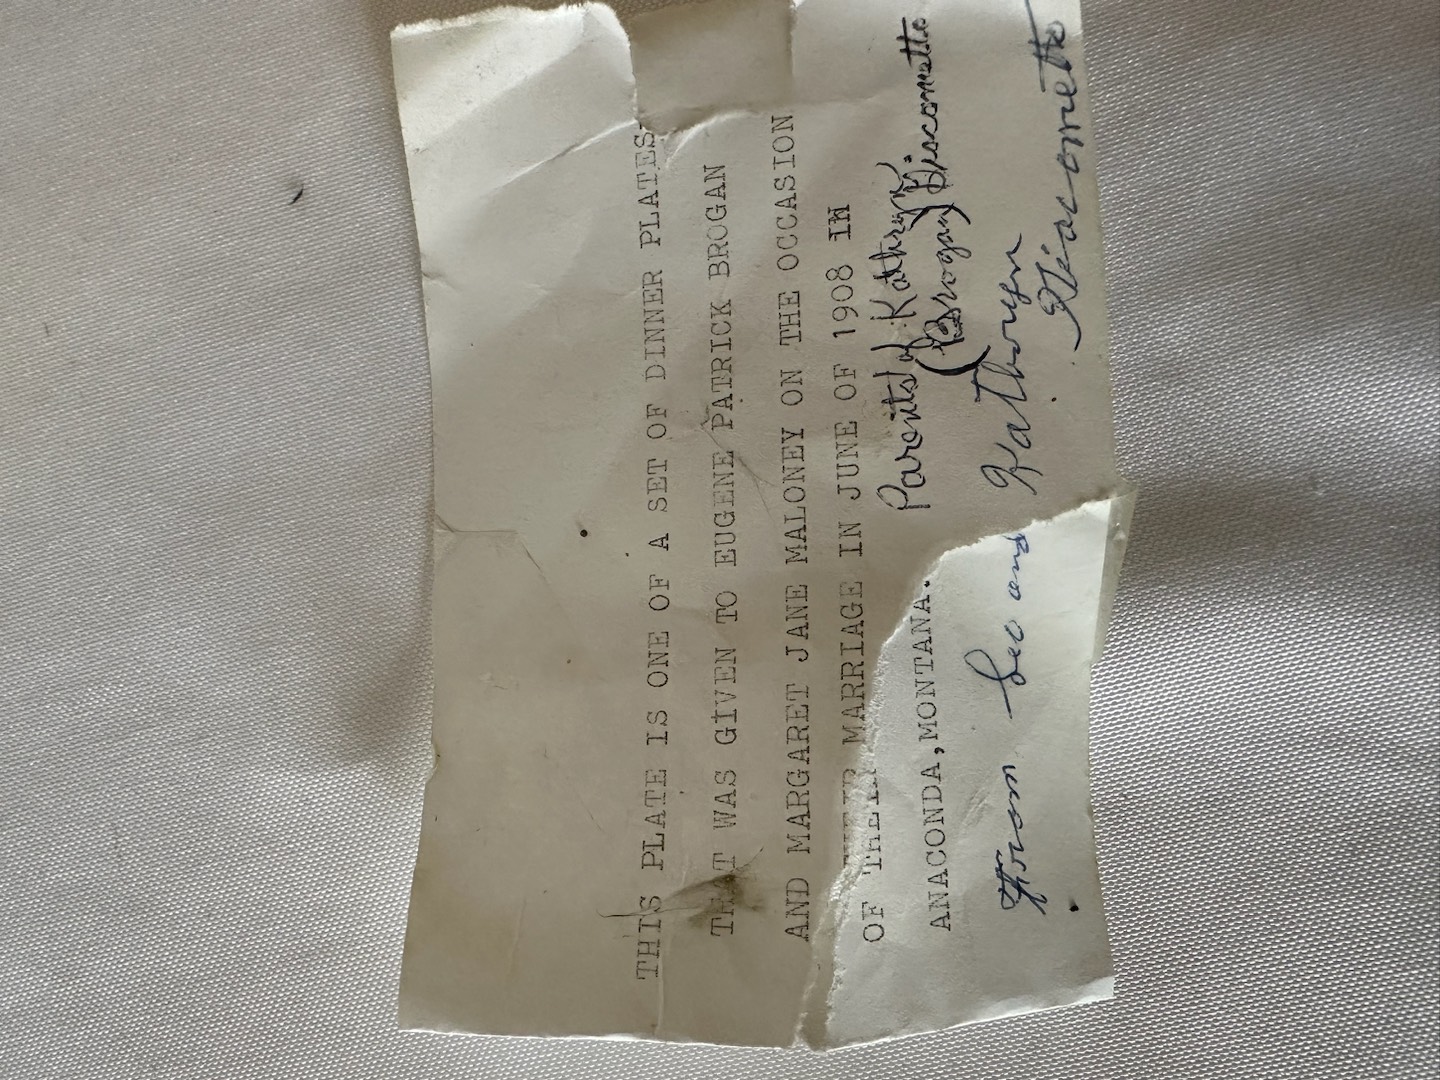 THIS PLATE IS ONE OF A SET OF DINNER PLATES
THAT WAS GIVEN TO EUGENE PATRICK BROGAN
AND MARGARET JANE MALONEY ON THE OCCASION
OF THEIR MARRIAGE IN JUNE OF 1908 IN
ANACONDA, MONTANA.
Parents of Kathryn
(Brogan) Giacometto
From Leo and Kathryn
Giacometto